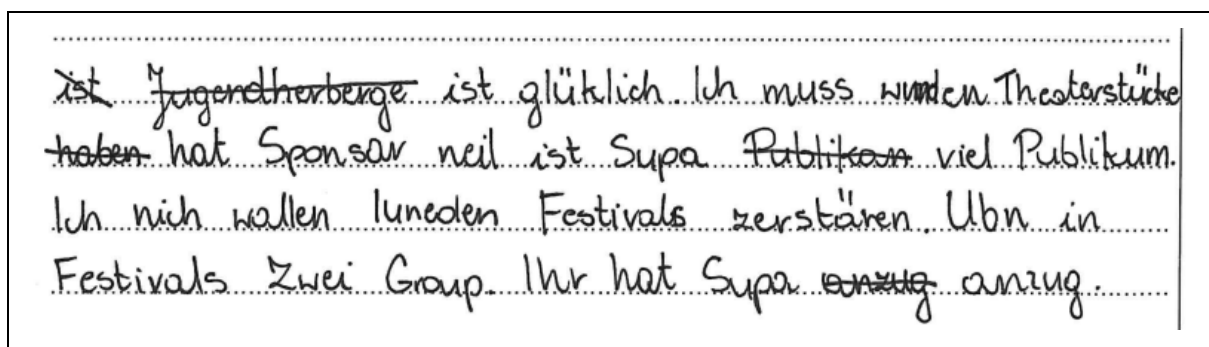 ist Jugendherberge ist glüklich. Ich muss wurden Theaterstücke
haben hat Sponsar neil ist Supa Publikan viel Publikum.
Ich nich wollen luneden Festivals zerstären. Ubn in
Festivals Zwei Group. Ihr hat Supa anzug anzug.